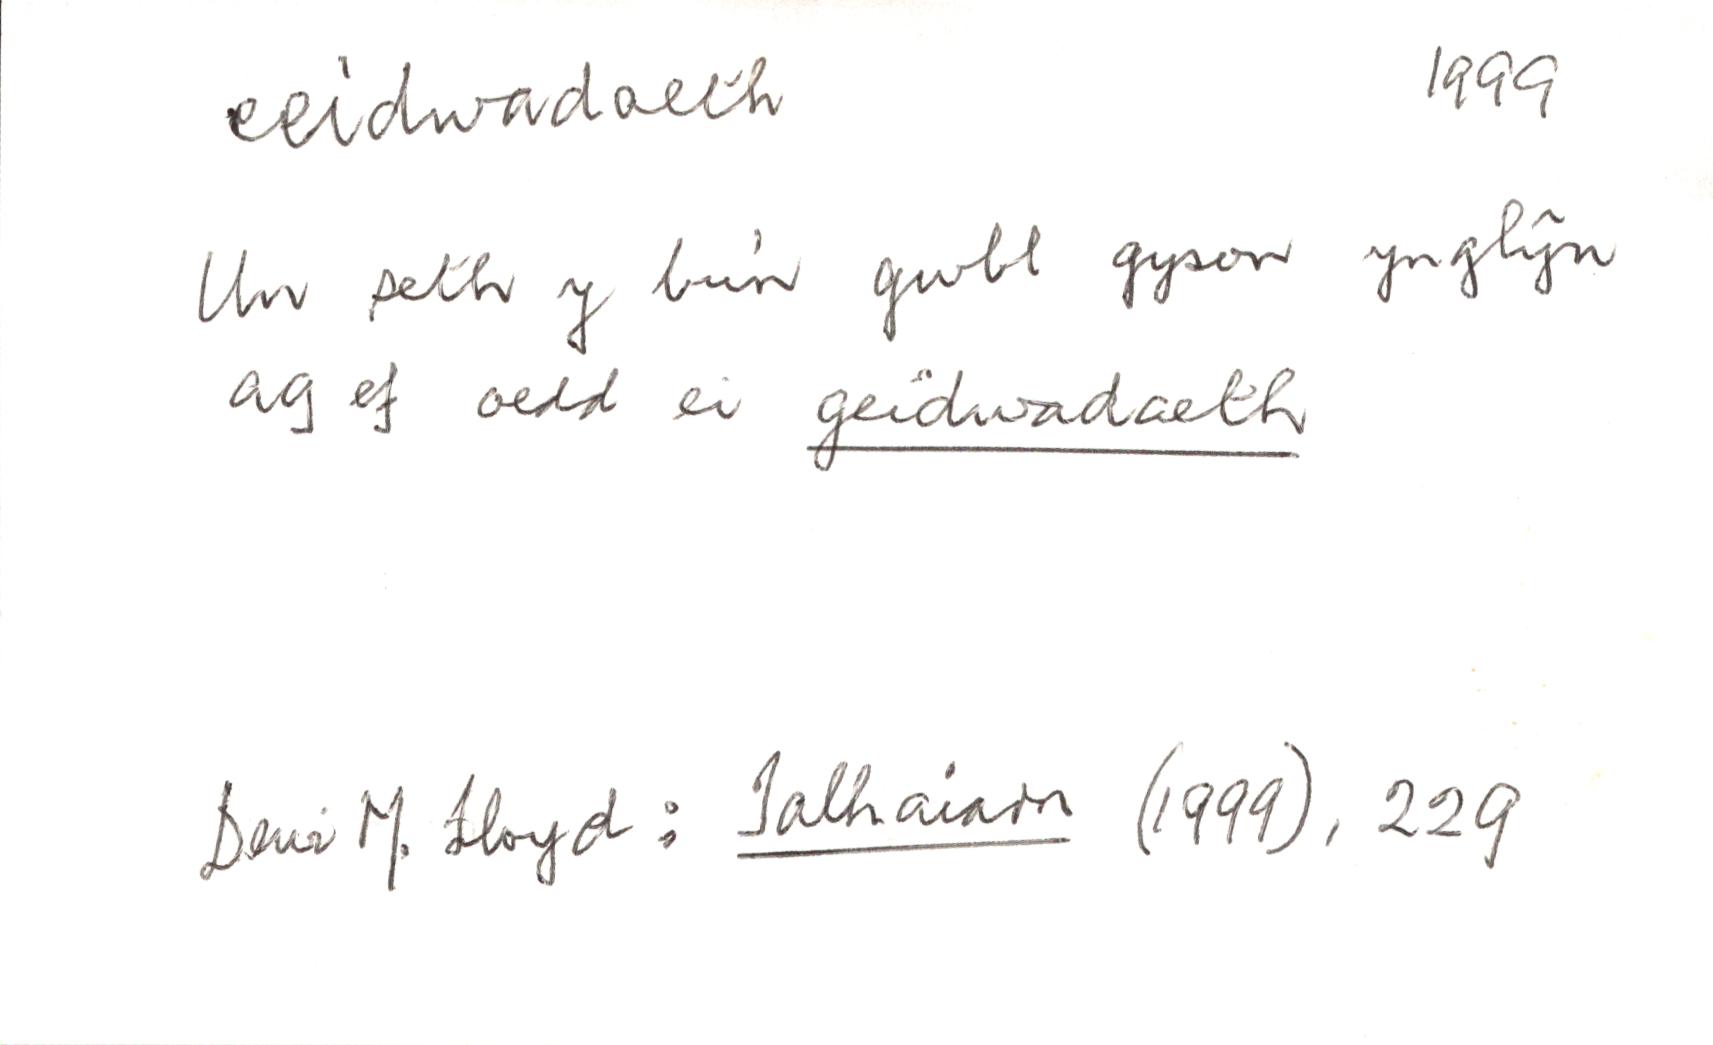 ceidwadaeth 1999
Un peth y bu'n gwbl gyson ynglŷn
ag ef oedd ei geidwadaeth
Dewi M. Lloyd: Talhaiarn (1999), 229